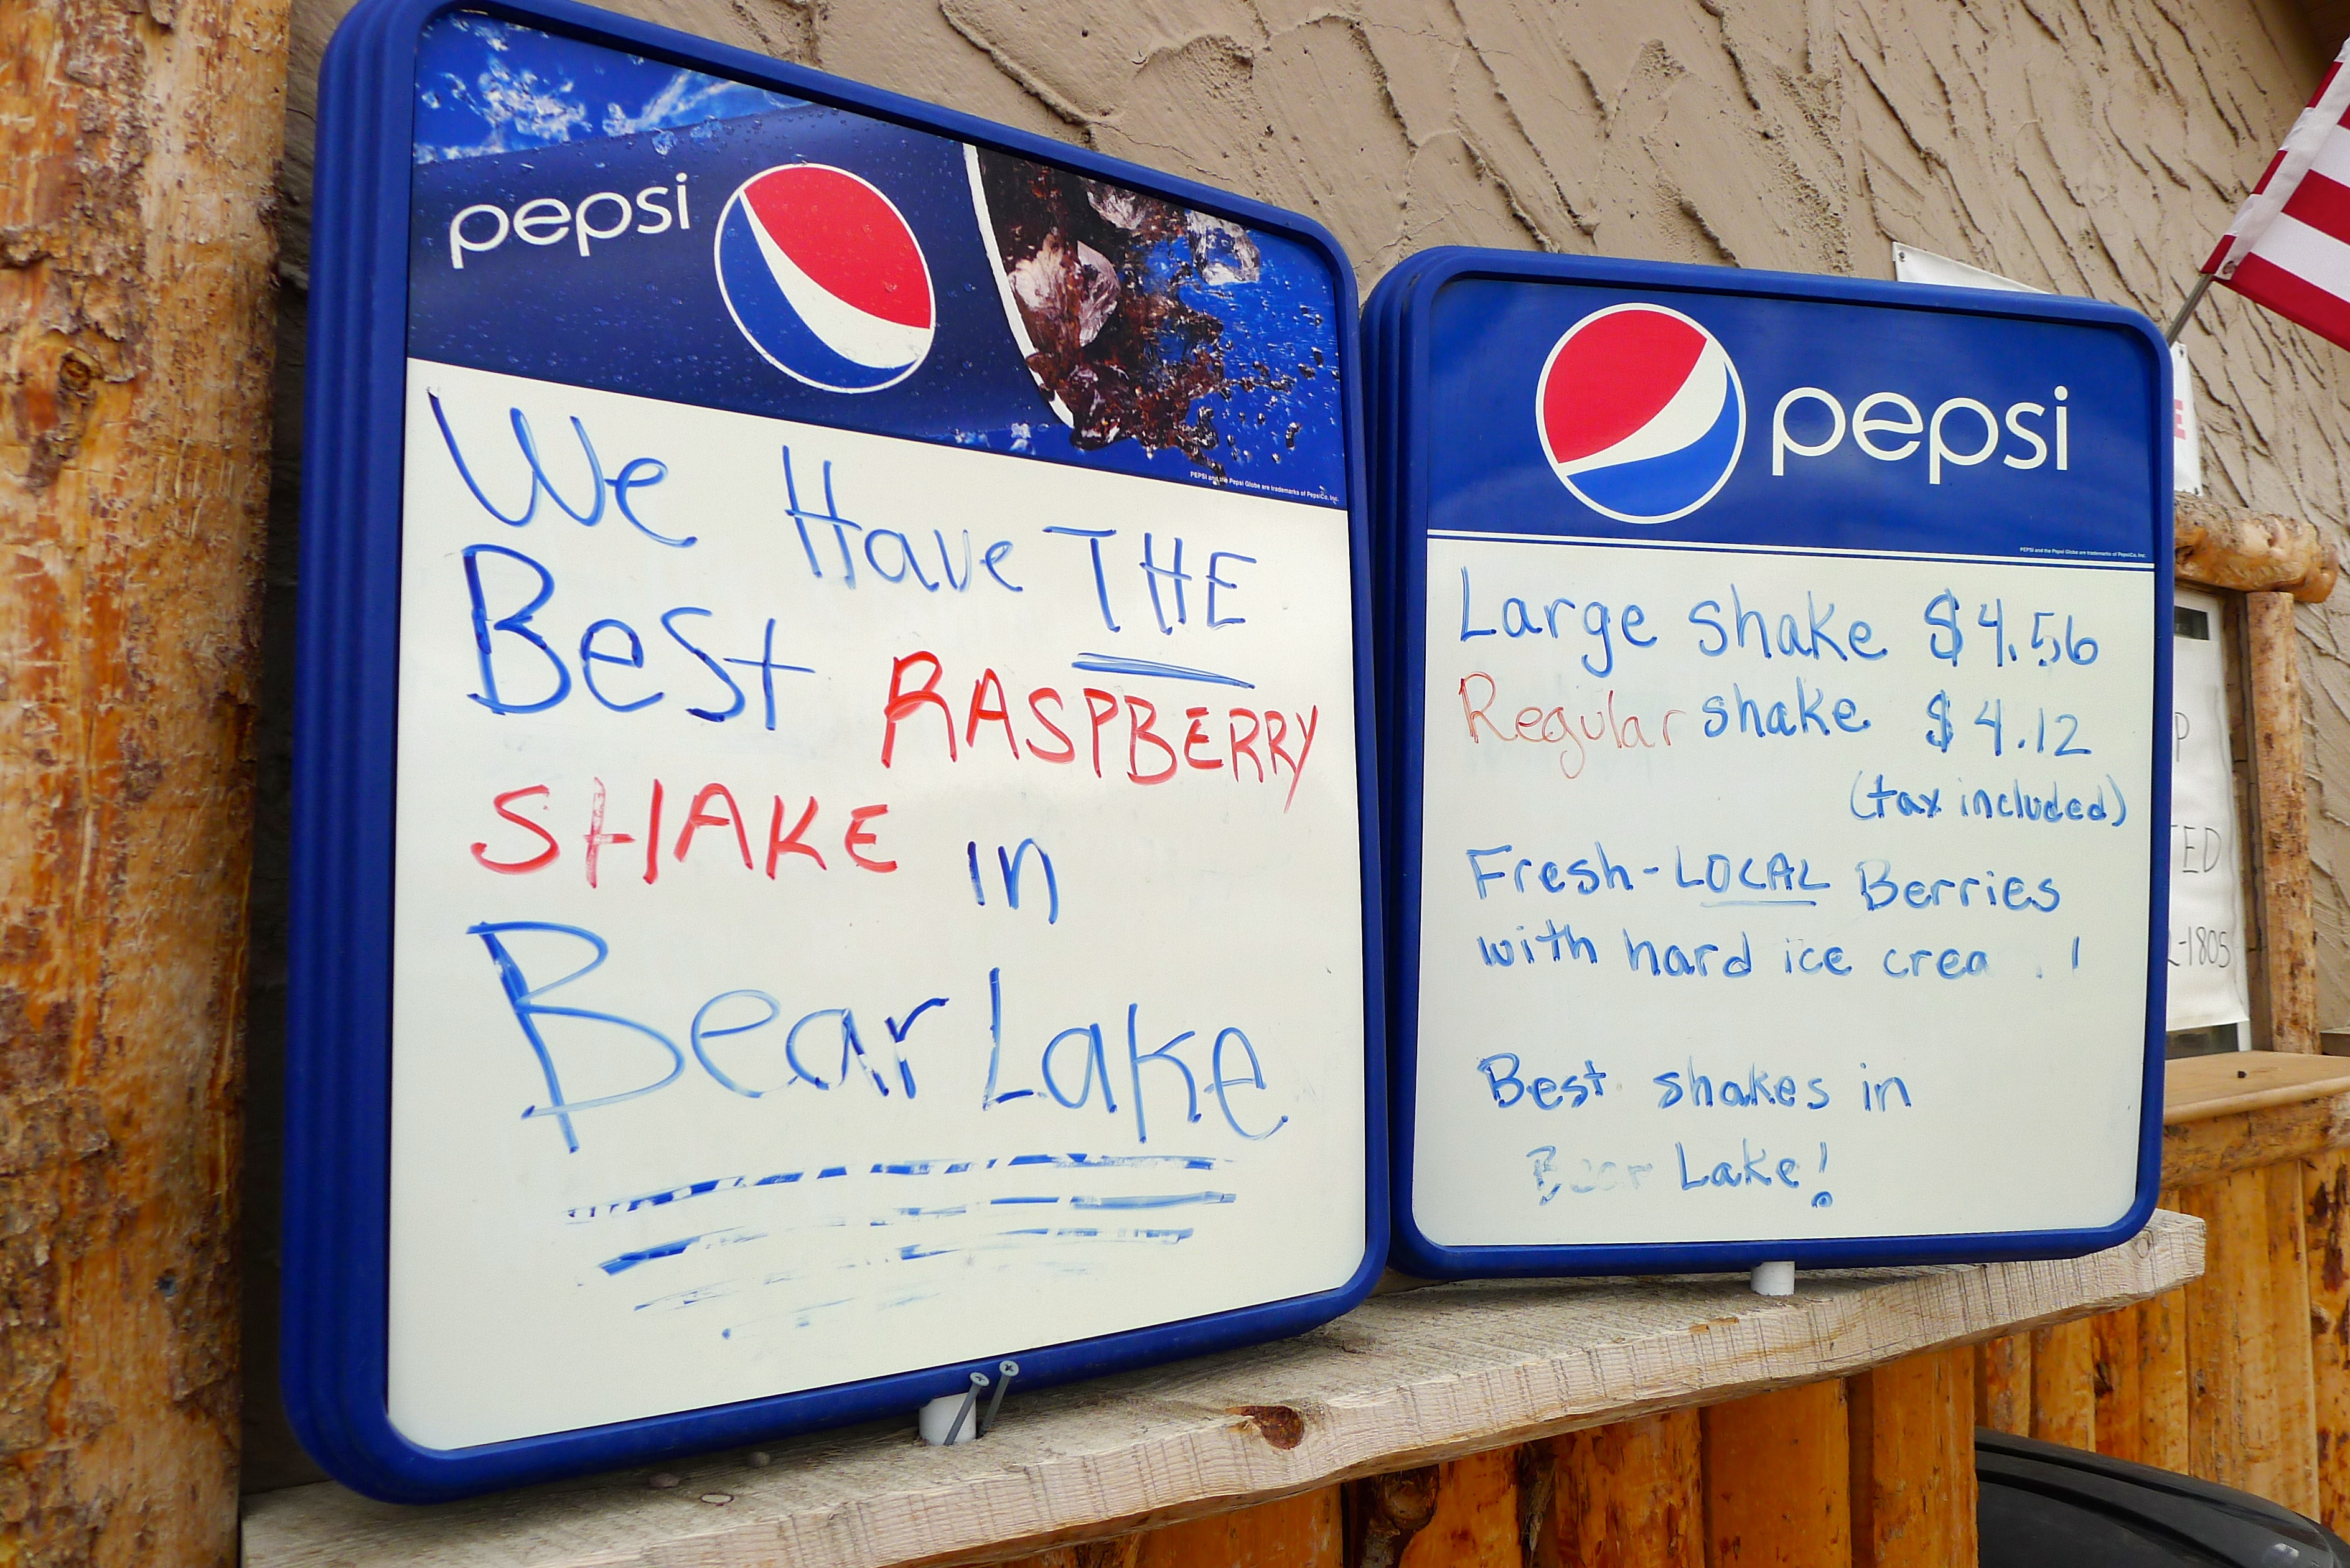 pepsi
PEPSI and the Pepsi Globe are trademarks of PepsiCo, Inc.
We Have THE
Best RASPBERRY
SHAKE in
Bear Lake
pepsi
PEPSI and the Pepsi Globe are trademarks of PepsiCo, Inc.
Large shake $4.56
Regular shake $4.12
(tax included)
Fresh-LOCAL Berries
with hard ice crea . !
Best shakes in
Bear Lake!
E
P
ED
-1805